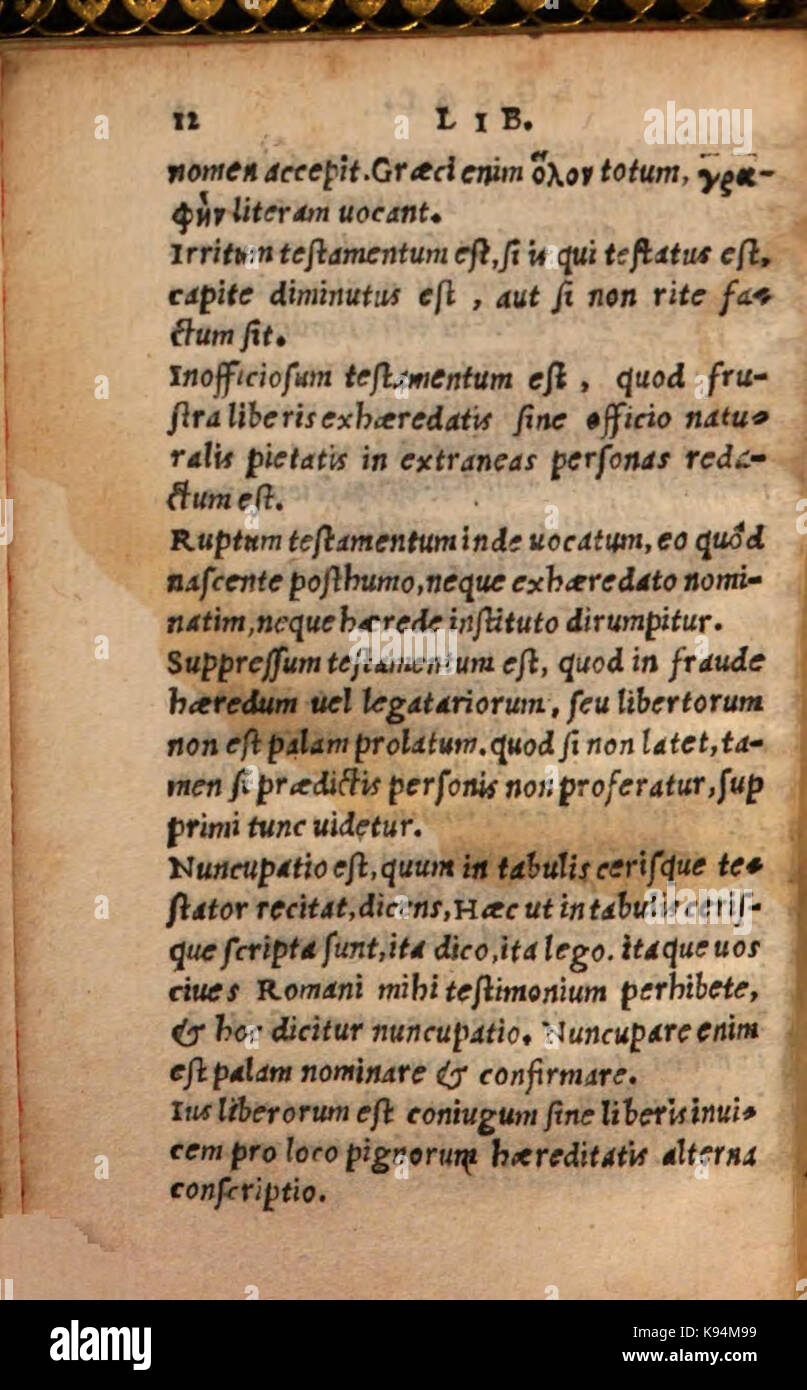 12 LIB.
nomen accepit.Græci enim ὅλον totum, γρα-
φὴν literam uocant.
Irritum testamentum est, si is qui testatus est,
capite diminutus est , aut si non rite fa-
ctum sit.
Inofficiosum testamentum est , quod fru-
stra liberis exhæredatis sine officio natu-
ralis pietatis in extraneas personas reda-
ctum est.
Ruptum testamentum inde uocatum, eo quòd
nascente posthumo, neque exhæredato nomi-
natim, neque hærede instituto dirumpitur.
Suppressum testamentum est, quod in fraude
hæredum uel legatariorum, seu libertorum
non est palam prolatum. quod si non latet, ta-
men si prædictis personis non proferatur, sup
primi tunc uidetur.
Nuncupatio est, quum in tabulis cerisque te-
stator recitat, dicens, Hæc ut in tabulis ceris-
que scripta sunt, ita dico, ita lego. itaque uos
ciues Romani mihi testimonium perhibete,
& hoc dicitur nuncupatio. Nuncupare enim
est palam nominare & confirmare.
Ius liberorum est coniugum sine liberis inui-
cem pro loco pignorum hæreditatis alterna
conscriptio.
alamy
a
alamy
Image ID: K94M99
www.alamy.com